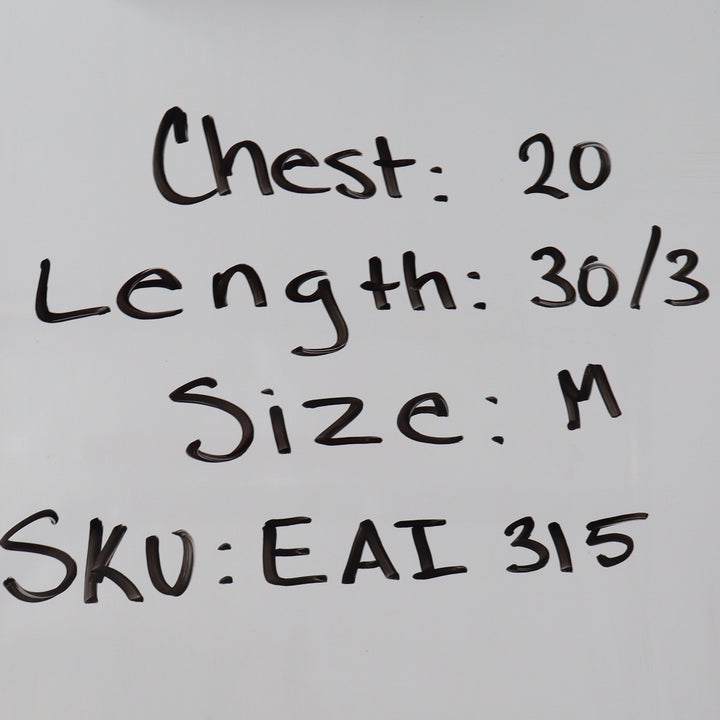 Chest: 20
Length: 30/3
Size: M
SKU: EAI 315